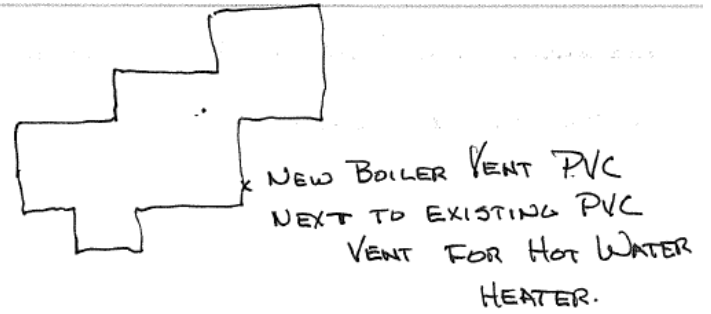 x NEW BOILER VENT PVC
NEXT TO EXISTING PVC
VENT FOR HOT WATER
HEATER.